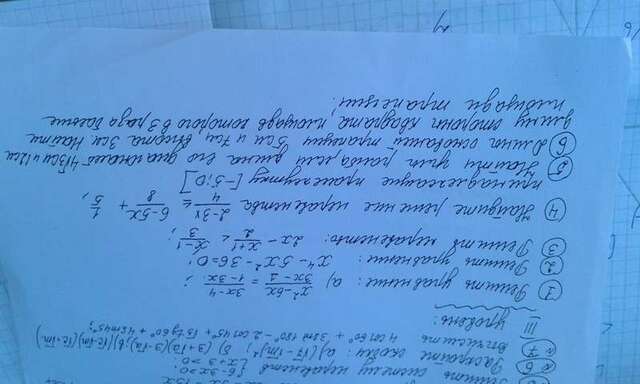 6-3x≥0;
№6 Раскройте скобки: а) (√7-√m)²; б) (3+√a)(3-√a); в) (√c+√m)(√c+√m)
№7 Вычислить 4cos60°+3sin180°-2cos45°+√3tg60°+4sin45°;
III уровень:
① Решить уравнение: а) x²-6x / 3x-1 = 3x-4 / 1-3x ;
② Решить уравнение: x⁴-5x²-36=0;
③ Решить неравенство: 2x - x+1 / 2 ≤ x-1 / 3 ;
④ Найдите решение неравенства ≤ 6-5x / 8 + 1 / 5 ,
принадлежащие промежутку [-5;0]
⑤ Найти углы ромба, если длина его диагоналей 4√3см и 12см
⑥ Длины оснований трапеции 5см и 7см, высота 3см. Найти
длину стороны квадрата, площадь которого в 3 раза больше
площади трапеции.